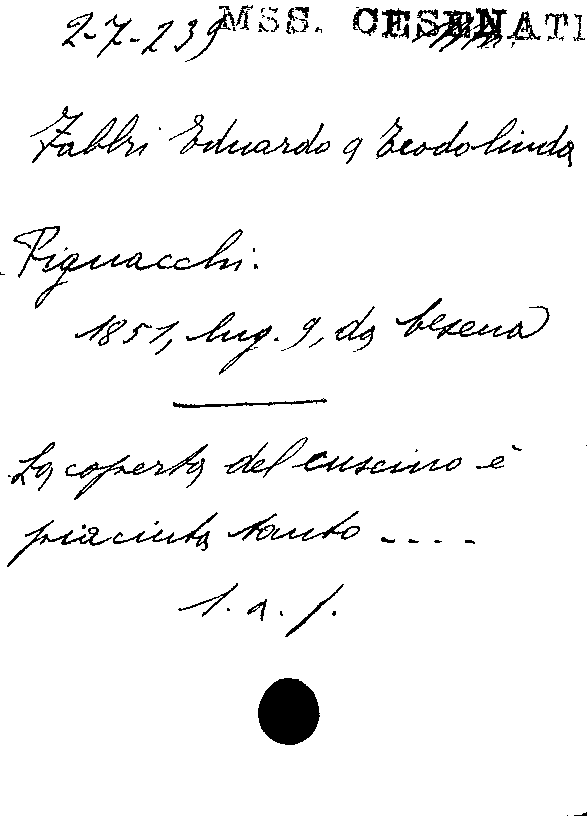 2-7-239 MSS. CESENATI
Fabbri Eduardo a Teodolinda
Pignacchi.
1851, lug. 9, da Cesena
La coperta del cuscino è
piaciuta tanto ....
l. a. f.